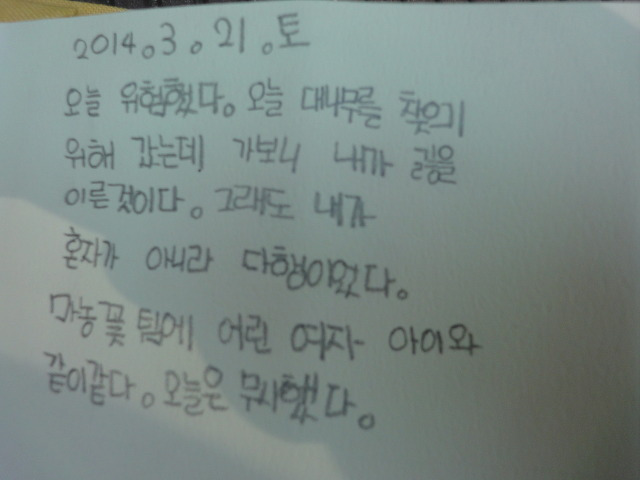 2014.3.21.토
오늘 위험했다. 오늘 대나무를 찾으기
위해 갔는데 가보니 내가 긿을
이른것이다. 그래도 내가
혼자가 아니라 다행이었다.
마농꽃 팀에 어린 여자 아이와
같이같다. 오늘은 무사했다.